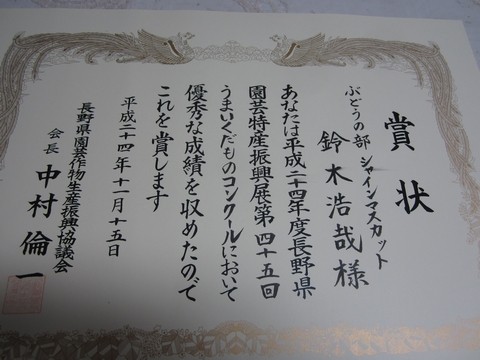 賞状
ぶどうの部 シャインマスカット
鈴木浩哉様
あなたは平成二十四年度長野県
園芸特産振興展第四十五回
うまいくだものコンクールにおいて
優秀な成績を収めたので
これを賞します
平成二十四年十一月十五日
長野県園芸作物生産振興協議会
会長 中村倫一